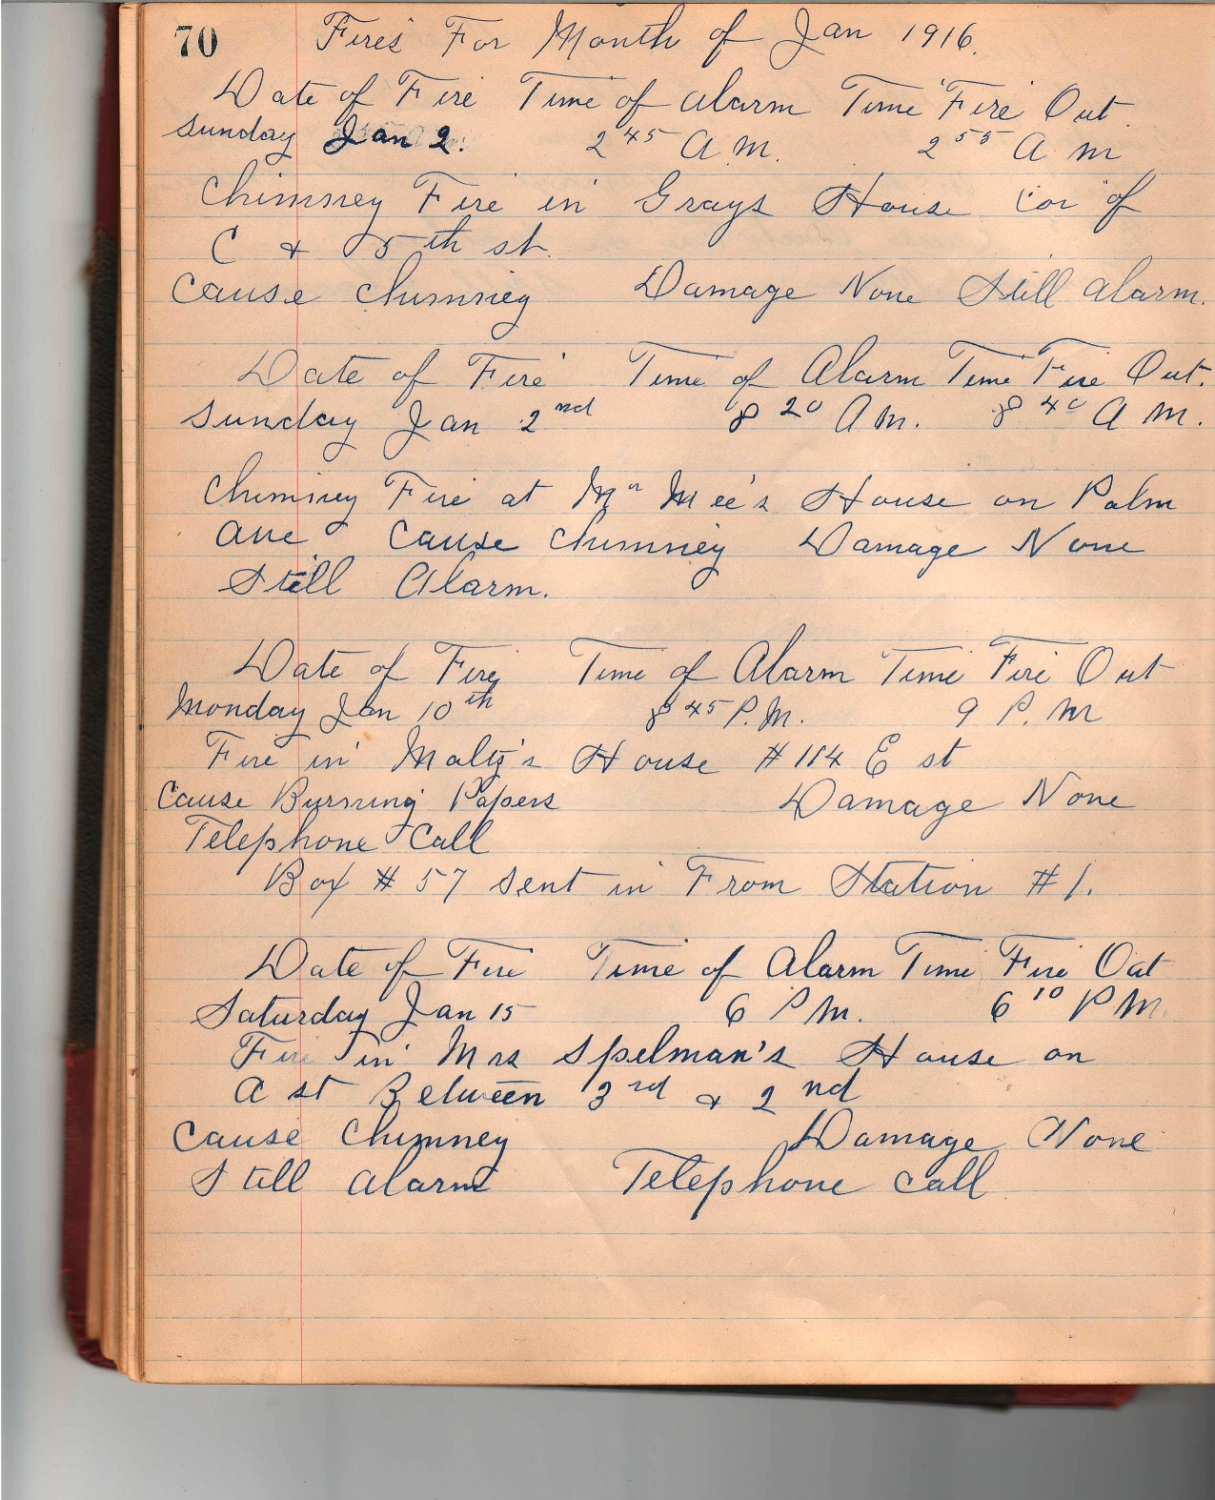 70 Fires For Month of Jan 1916.
Date of Fire Time of alarm Time Fire Out.
Sunday Jan 2. 2 45 A.M. 2 55 A M
Chimney Fire in Grays House Cor of
C & 5th st.
Cause Chimney Damage None Still alarm.
Date of Fire Time of Alarm Time Fire Out.
Sunday Jan 2nd 8 20 A M. 8 40 A M.
Chimney Fire at Mr Mee's House on Palm
Ave Cause Chimney Damage None
Still Alarm.
Date of Fire Time of Alarm Time Fire Out
Monday Jan 10th 8 45 P.M. 9 P. M
Fire in House # 114 E st
Cause Burning Papers Damage None
Telephone Call
Box # 57 sent in From Station # 1.
Date of Fire Time of Alarm Time Fire Out
Saturday Jan 15 6 P M. 6 10 P M.
Fire in Mrs Spelman's House on
A st Between 3rd & 2nd
Cause Chimney Damage None
Still Alarm Telephone Call